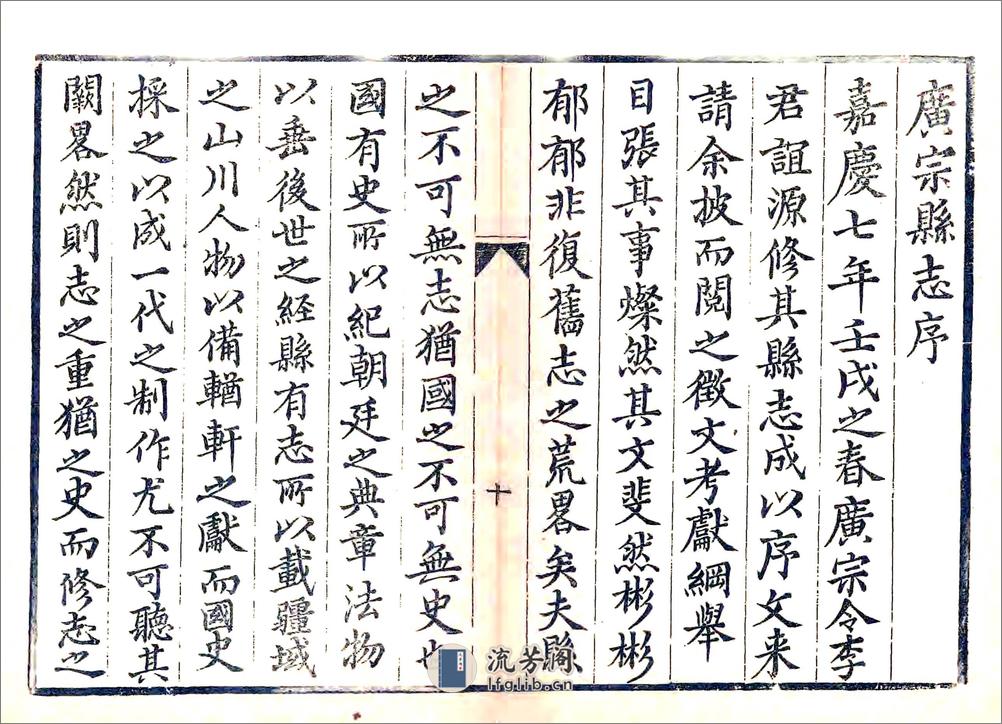 廣宗縣志序
嘉慶七年壬戌之春廣宗令李
君誼源修其縣志成以序文来
請余披而閱之徵文考獻綱舉
目張其事燦然其文斐然彬彬
郁郁非復舊志之荒畧矣夫縣
十
之不可無志猶國之不可無史也
國有史所以紀朝廷之典章法物
以垂後世之経縣有志所以載疆域
之山川人物以備輶軒之獻而國史
採之以成一代之制作尤不可聽其
闕畧然則志之重猶之史而修志之
流芳閣
lfglib.cn